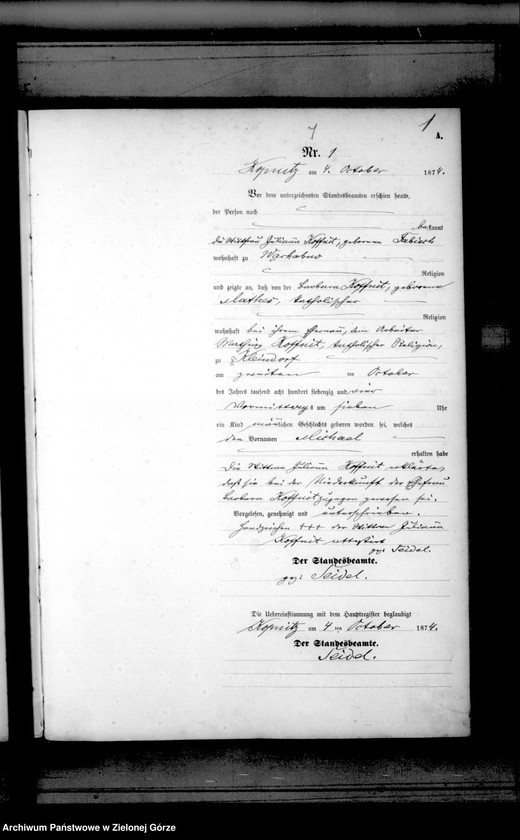 1
A.
7
Nr. 1
Kopnitz am 4. October 1874.
Vor dem unterzeichneten Standesbeamten erschien heute,
der Person nach
bekannt
die Wittfrau Juliana Koffnit, geborene
wohnhaft zu
Religion
und zeigte an, daß von der Barbara Koffnit, geborene
Mathes, katholischer
Religion
wohnhaft bei ihrem Ehemann, dem Arbeiter
Koffnit, katholischer Religion,
zu Kleindorf
am zweiten ten October
des Jahres tausend acht hundert siebenzig und vier
Vormittags um sieben Uhr
ein Kind männlichen Geschlechts geboren worden sei, welches
den Vornamen Michael
erhalten habe
Die Wittwe Juliana Koffnit erklärte,
daß sie bei der Niederkunft der Ehefrau
Barbara Koffnit zugegen gewesen sei.
Vorgelesen, genehmigt und unterschrieben.
Handzeichen +++ der Wittwe Juliana
Koffnit attestirt
gez: Seidel.
Der Standesbeamte.
gez: Seidel.
Die Uebereinstimmung mit dem Hauptregister beglaubigt
Kopnitz am 4 ten October 1874.
Der Standesbeamte.
Seidel.
Archiwum Państwowe w Zielonej Górze